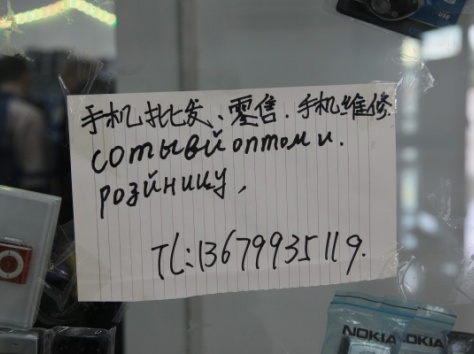 手机批发、零售.手机维修
сотывйоптоми.
розйницу,
TL:13679935119.
NOKIA NOKIA